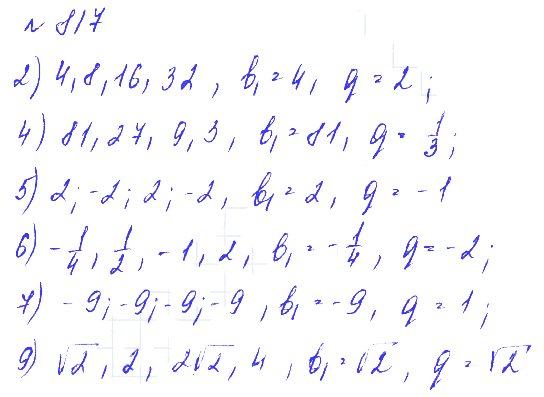 № 817
2) 4, 8, 16, 32, b₁ = 4, q = 2;
4) 81, 27, 9, 3, b₁ = 81, q = 1/3;
5) 2; -2; 2; -2, b₁ = 2, q = -1
6) -1/4, 1/2, -1, 2, b₁ = -1/4, q = -2;
7) -9; -9; -9; -9, b₁ = -9, q = 1;
9) √2, 2, 2√2, 4, b₁ = √2, q = √2